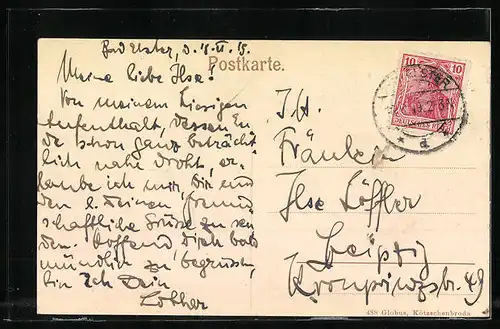 Bad Elster, d. 18. VI. 15.
Postkarte.
Meine liebe Ilse!
Von meinem hiesigen
Aufenthalt, dessen En-
de schon ganz beträcht-
lich nahe droht, er-
laube ich mir, Dir und
den l. Deinen freund-
schaftliche Grüße zu sen-
den. Hoffend, Dich bald
mündlich zu begrüssen,
bin ich Dein
Lothar
Fräulein
Ilse Löffler
Leipzig
Kronprinzstr. 49
10 10
DEUTSCHES REICH
488 Globus, Kötzschenbroda